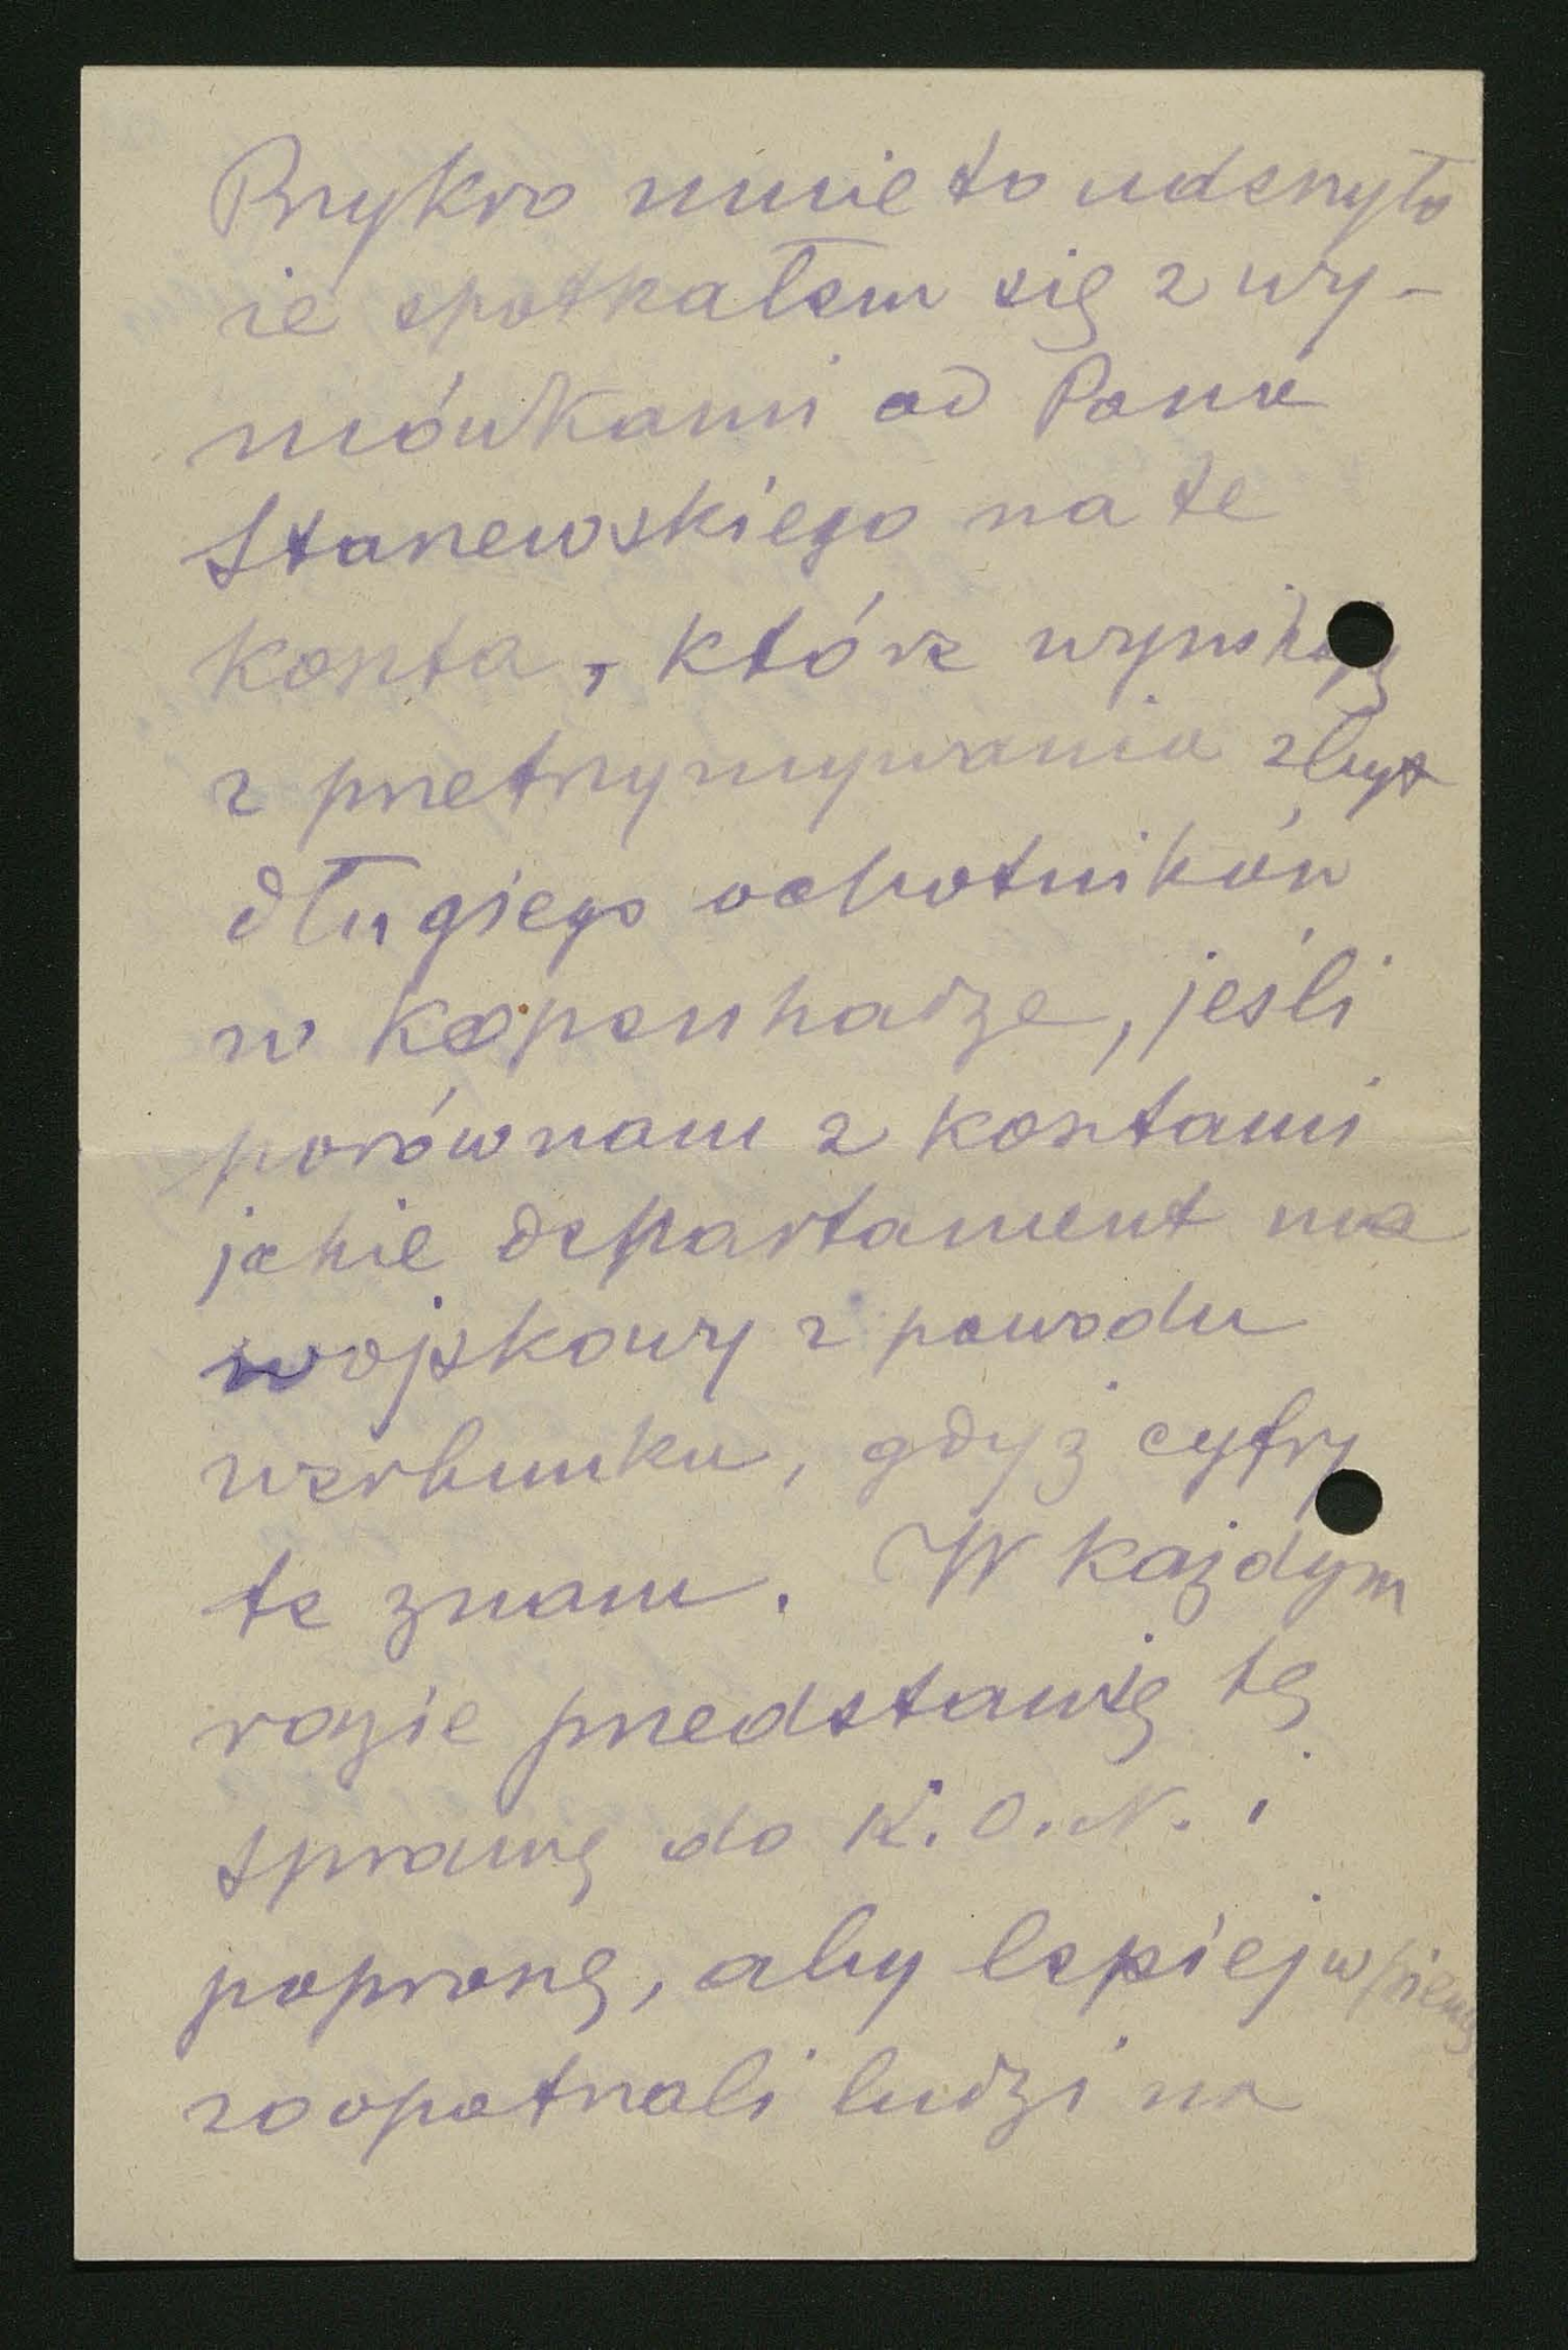 Przykro mnie to uderzyło
że spotkałem się z wy-
mówkami od Pana
Stanewskiego na te
koszta, które wynikają
z przetrzymywania zbyt
długiego ochotników
w Kopenhadze, jeśli
porównam z kosztami
jakie departament ma
wojskowy z powodu
werbunku, gdyż cyfry
te znam. W każdym
razie przedstawię tę
sprawę do K.O.N. i
poproszę, aby lepiej w
zaopatrzali ludzi na